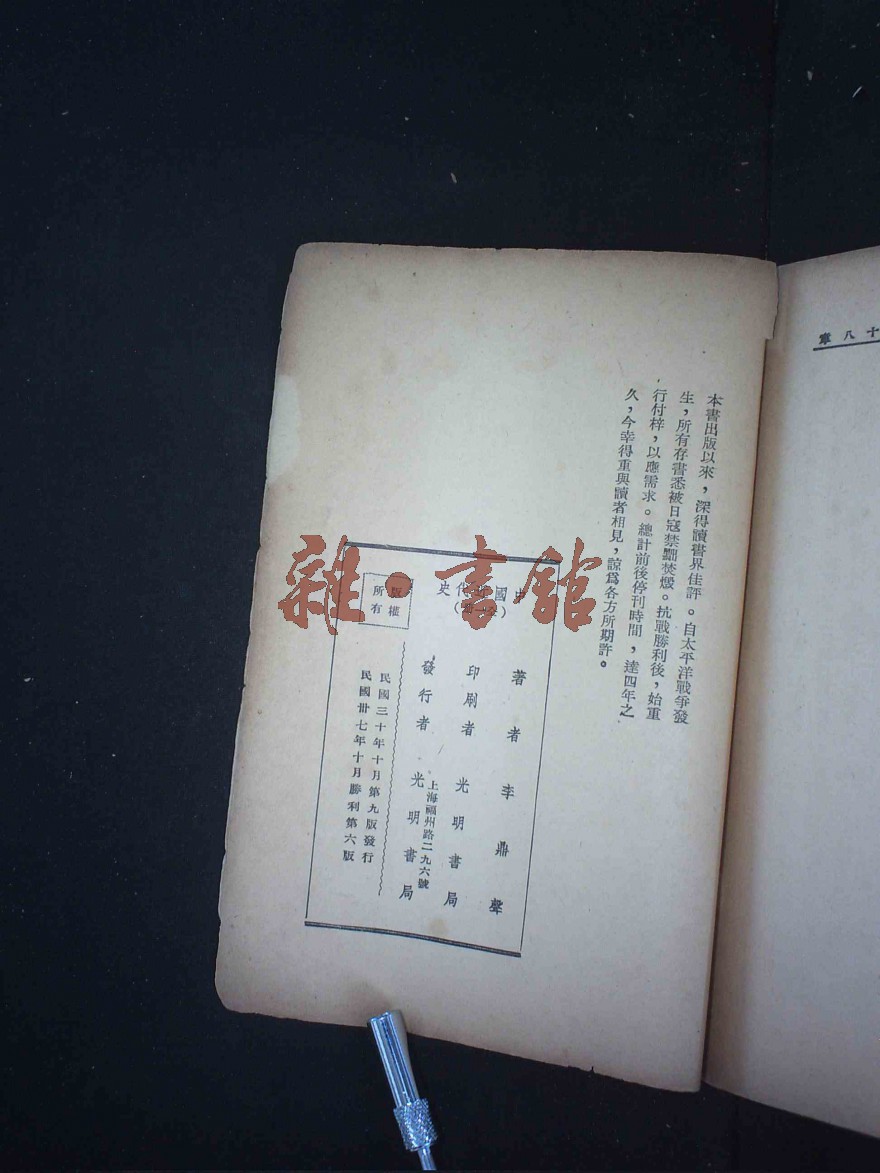 十八章
本書出版以來，深得讀書界佳評。自太平洋戰爭發
生，所有存書悉被日寇禁
焚燬。抗戰勝利後，始重
行付梓，以應需求。總計前後停刊時間，達四年之
久，今幸得重與讀者相見，諒爲各方所期許。
國 代史
著者 李鼎聲
印刷者 光明書局
上海福州路二九六號
發行者 光明書局
民國三十年十月第九版發行
民國卅七年十月勝利第六版
版權
所有
雜·書館